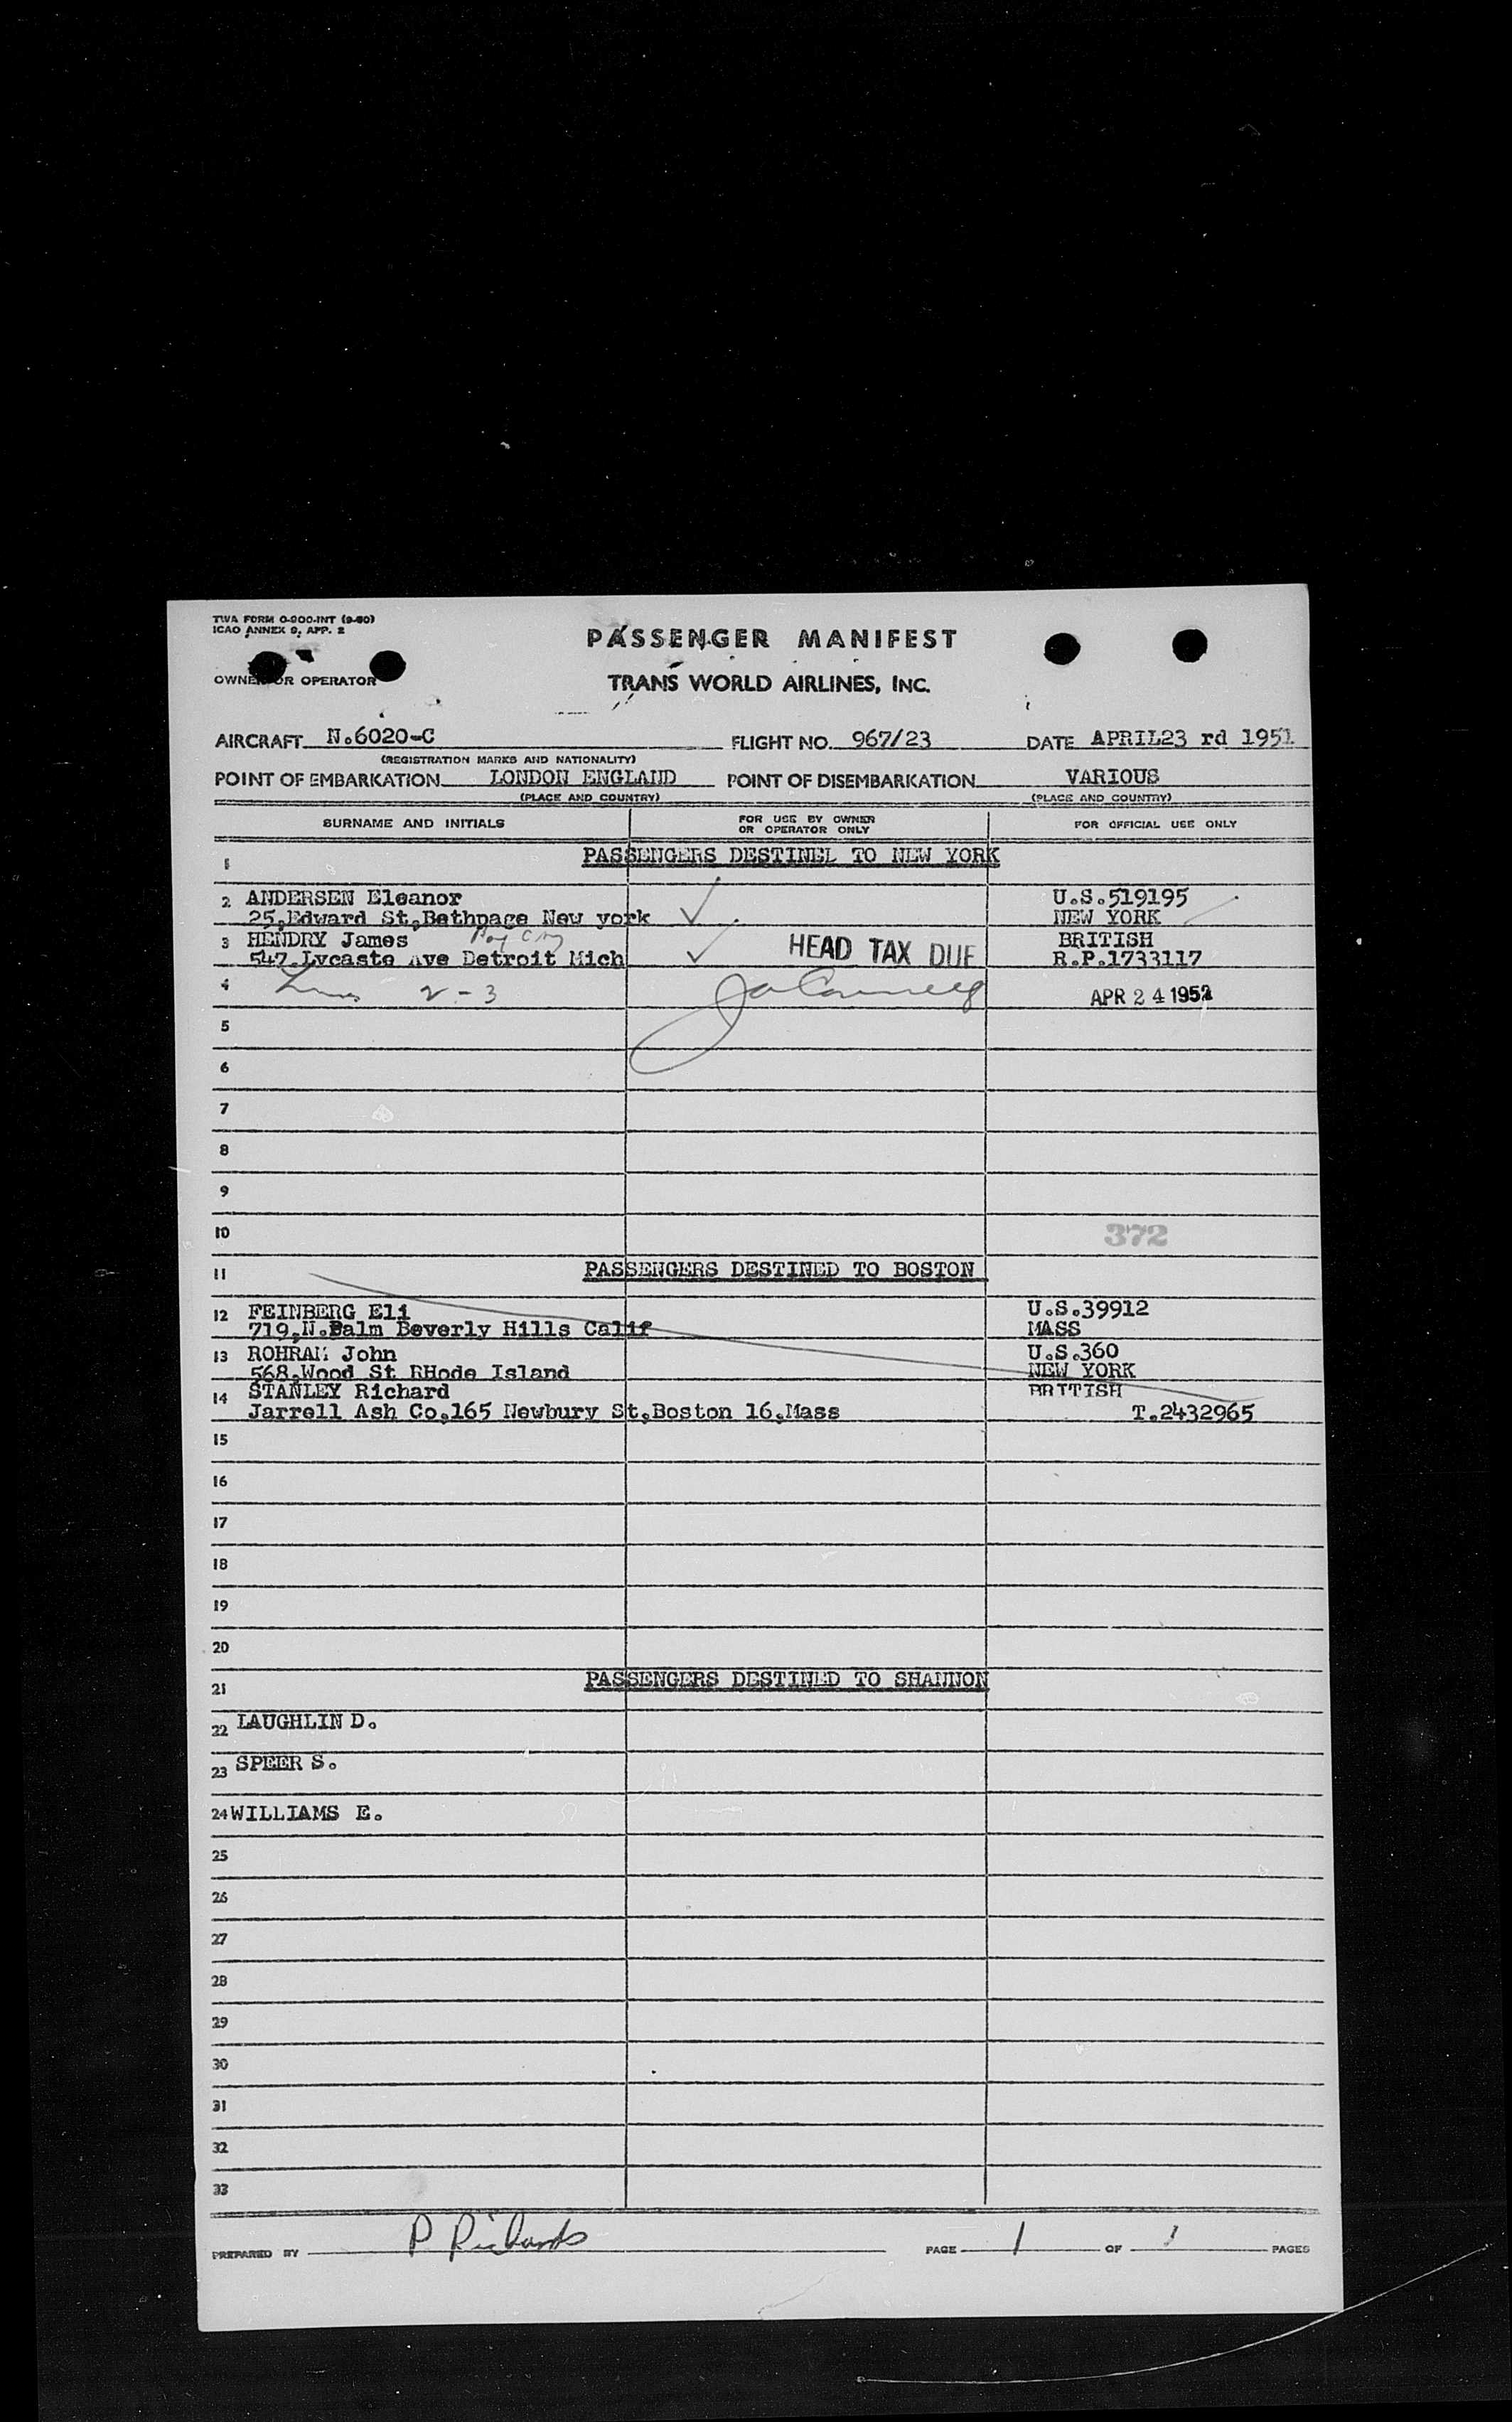 TWA FORM O-900-INT (9-50)
ICAO ANNEX 9, APP. 2
PASSENGER MANIFEST
OWNER OR OPERATOR
TRANS WORLD AIRLINES, INC.
AIRCRAFT N.6020-C FLIGHT NO. 967/23 DATE APRIL23 rd 1951
(REGISTRATION MARKS AND NATIONALITY)
POINT OF EMBARKATION LONDON ENGLAND POINT OF DISEMBARKATION VARIOUS
(PLACE AND COUNTRY) (PLACE AND COUNTRY)
SURNAME AND INITIALS FOR USE BY OWNER OR OPERATOR ONLY FOR OFFICIAL USE ONLY
1 PASSENGERS DESTINED TO NEW YORK
2 ANDERSEN Eleanor U.S.519195
25,Edward St,Bethpage New york NEW YORK
3 HENDRY James BRITISH
547.Lycaste Ave Detroit Mich HEAD TAX DUE R.P.1733117
4 2-3 APR 24 1951
5
6
7
8
9
10 372
11 PASSENGERS DESTINED TO BOSTON
12 FEINBERG Eli U.S.39912
719,N.Palm Beverly Hills Calif MASS
13 ROHRAM John U.S.360
568,Wood St RHode Island NEW YORK
14 STANLEY Richard BRITISH
Jarrell Ash Co,165 Newbury St,Boston 16,Mass T.2432965
15
16
17
18
19
20
21 PASSENGERS DESTINED TO SHANNON
22 LAUGHLIN D.
23 SPEER S.
24 WILLIAMS E.
25
26
27
28
29
30
31
32
33
PREPARED BY P Richards PAGE 1 OF 1 PAGES